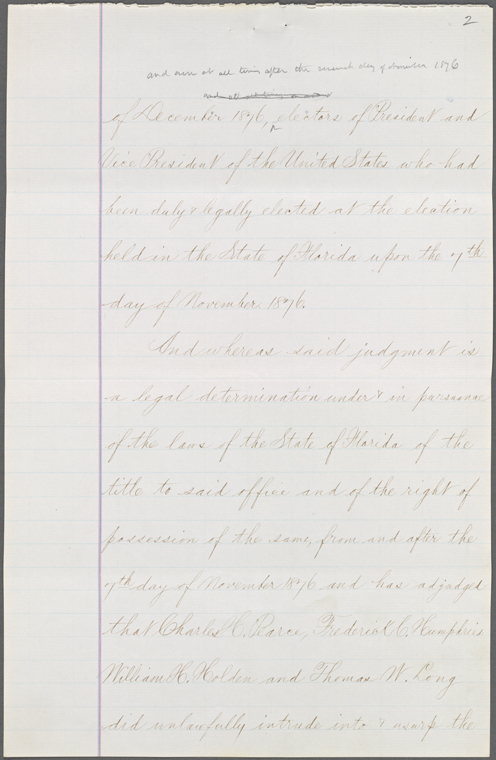 2
and were at all times after the seventh day of November 1876
and at all
of December 1876, electors of President and
Vice President of the United States who had
been duly & legally elected at the election
held in the State of Florida upon the 7th
day of November 1876.
And whereas said judgment is
a legal determination under & in pursuance
of the laws of the State of Florida of the
title to said office and of the right of
possession of the same, from and after the
7th day of November 1876 and has adjudged
that Charles H. Pearce, Frederick C. Humphries
William H. Holden and Thomas W. Long
did unlawfully intrude into & usurp the